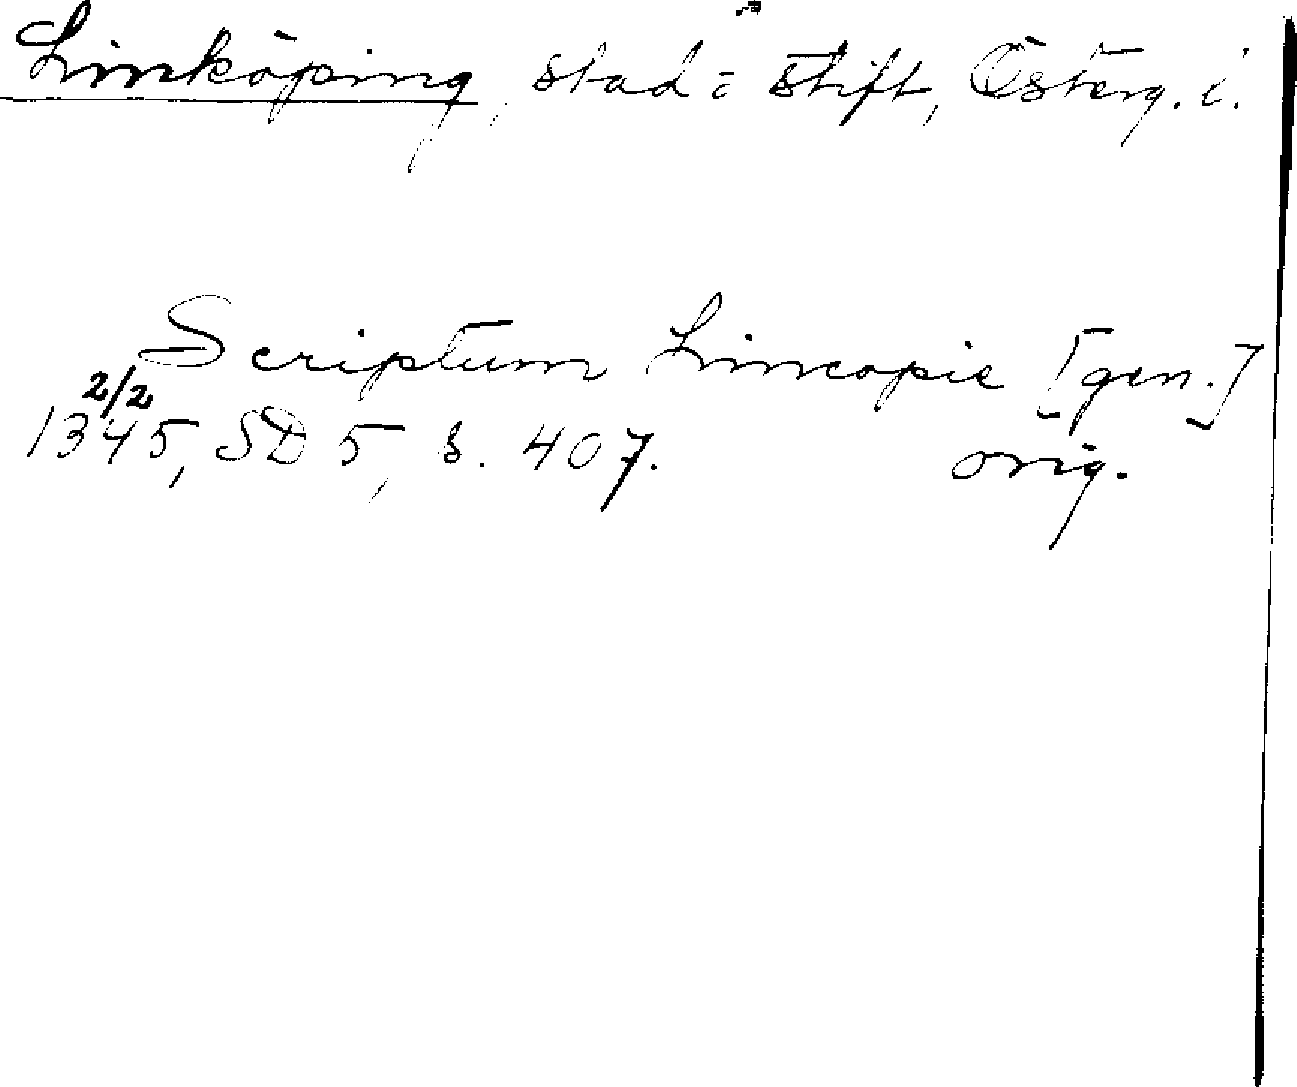 Linköping, stad = stift, Österg. l.
Scriptum Lincopie [gen.]
2/2
1345, SD 5, s. 407. orig.